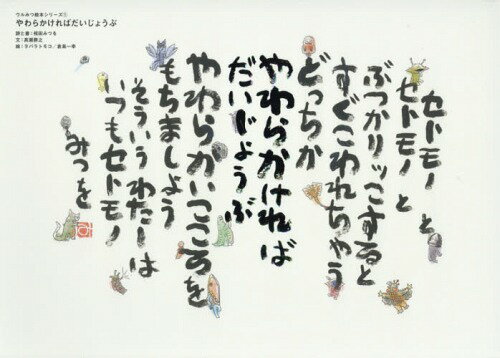 ウルみつ絵本シリーズ①
やわらかければだいじょうぶ
詩と書：相田みつを
文：
絵：タバラトモコ／倉島一幸
セトモノと
セトモノと
ぶつかりッこすると
すぐこわれちゃう
どっちか
やわらかければ
だいじょうぶ
やわらかいこころを
もちましょう
そういうわたしは
いつもセトモノ
みつを